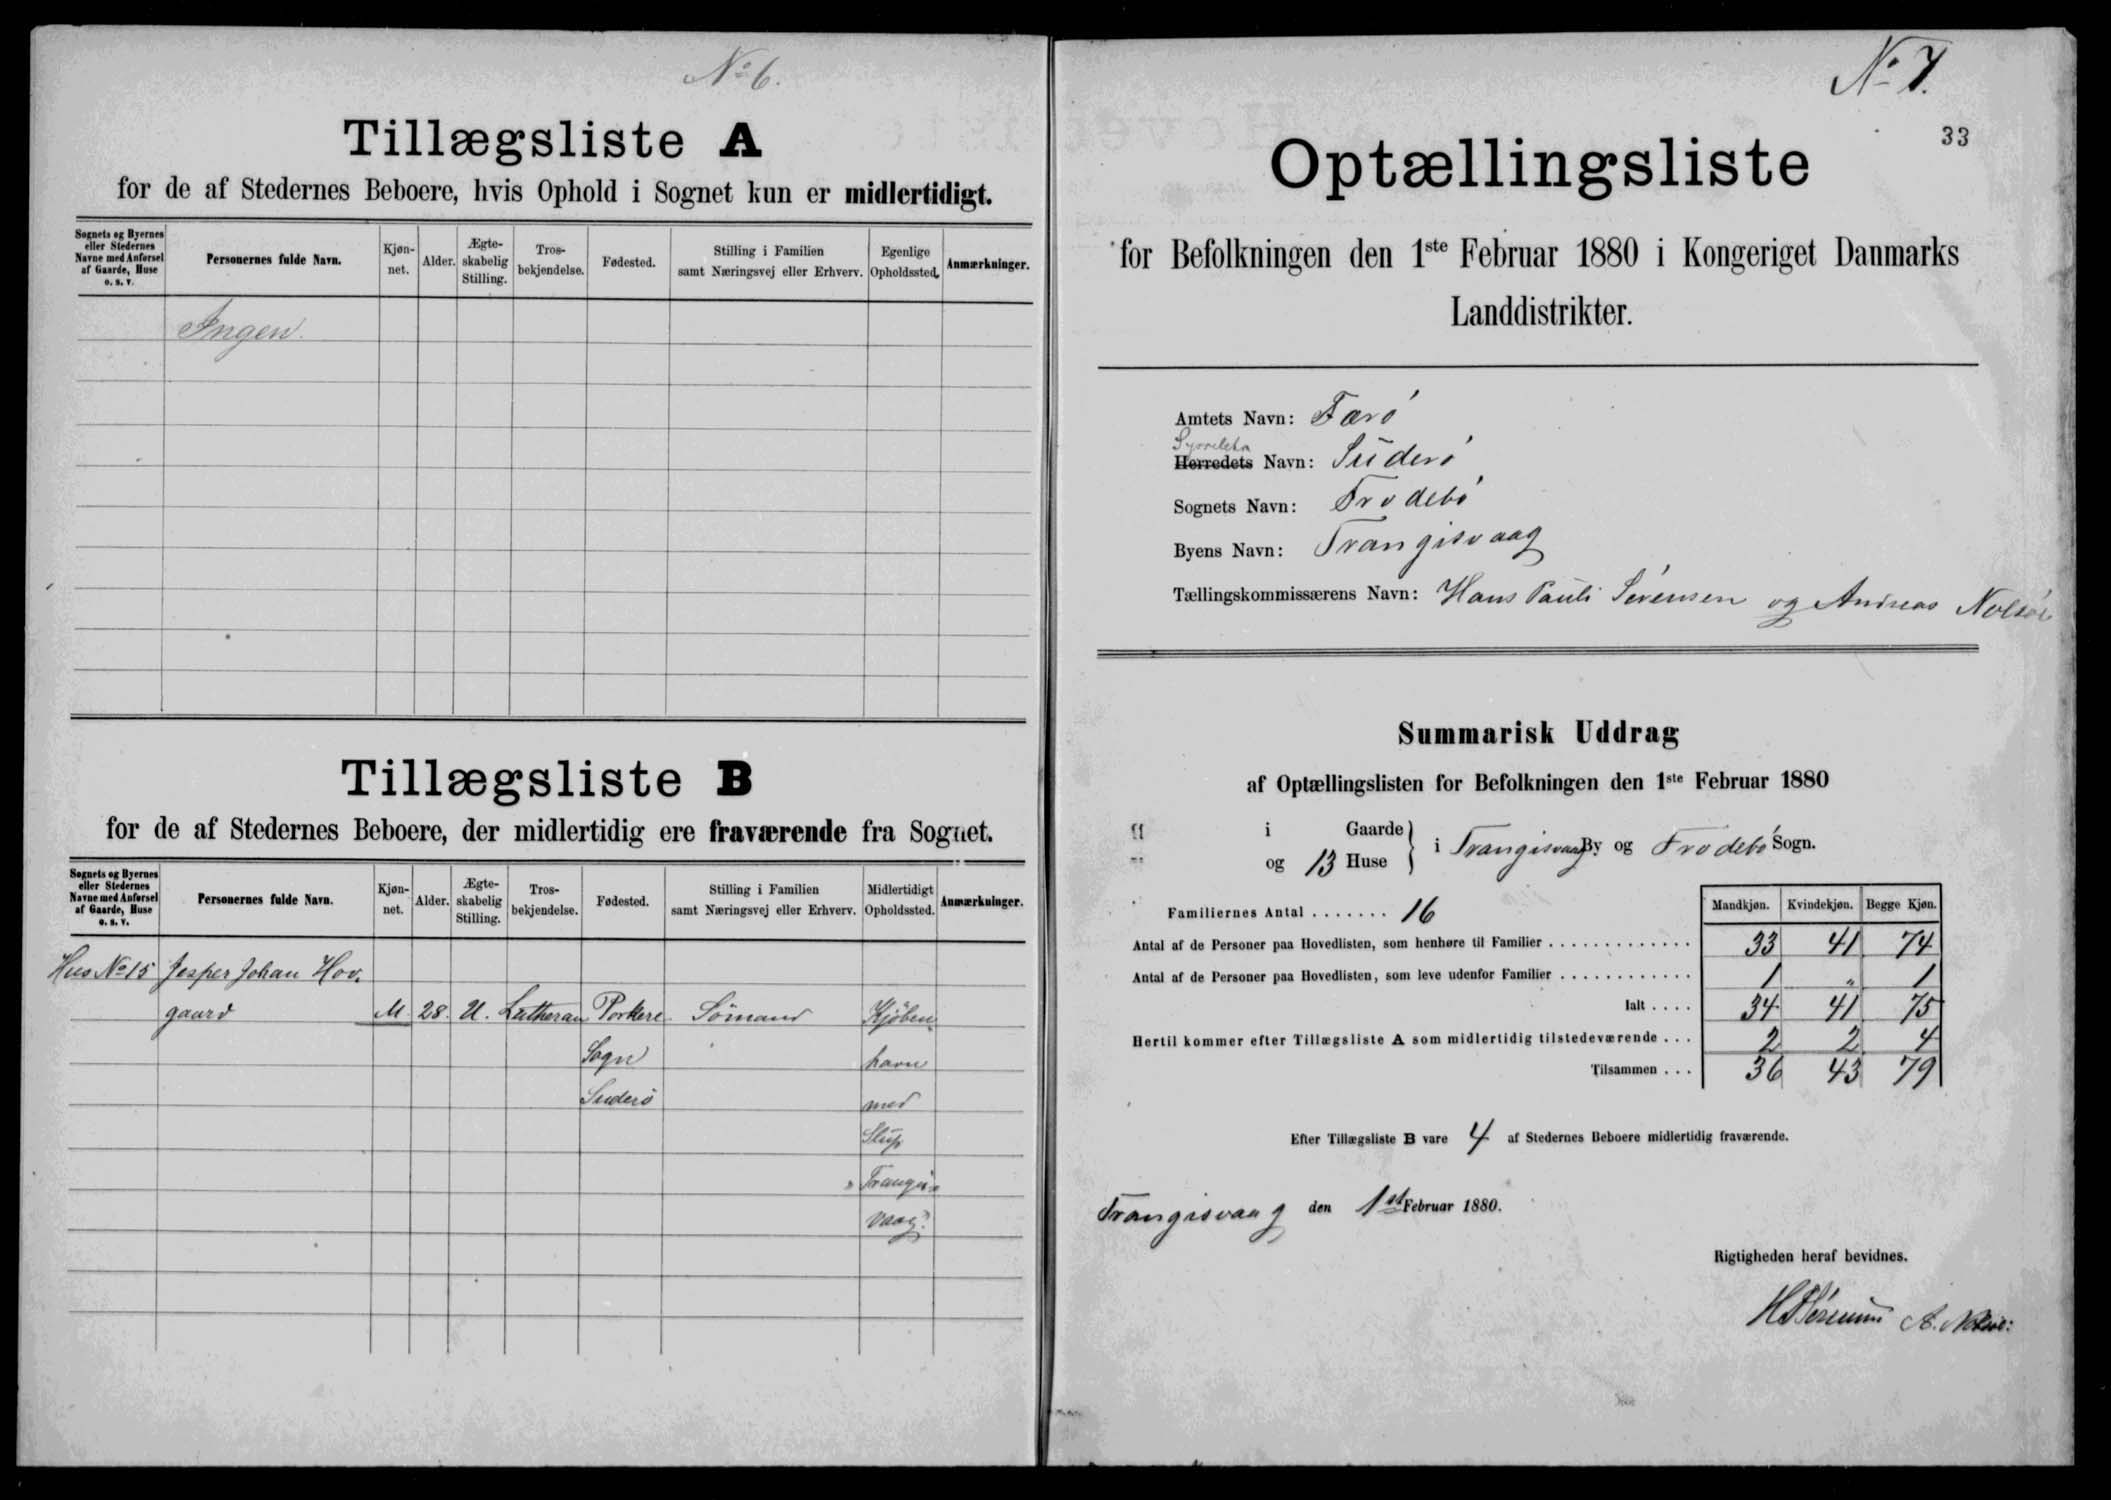 No 6.
Tillægsliste A
for de af Stedernes Beboere, hvis Ophold i Sognet kun er midlertidigt.
Sognets og Byernes eller Stedernes Navne med Anførsel af Gaarde, Huse o. s. v.
Personernes fulde Navn.
Kjøn-net.
Alder.
Ægte-skabelig Stilling.
Tros-bekjendelse.
Fødested.
Stilling i Familien samt Næringsvej eller Erhverv.
Egenlige Opholdssted.
Anmærkninger.
Ingen.
Tillægsliste B
for de af Stedernes Beboere, der midlertidig ere fraværende fra Sognet.
Sognets og Byernes eller Stedernes Navne med Anførsel af Gaarde, Huse o. s. v.
Personernes fulde Navn.
Kjøn-net.
Alder.
Ægte-skabelig Stilling.
Tros-bekjendelse.
Fødested.
Stilling i Familien samt Næringsvej eller Erhverv.
Midlertidigt Opholdssted.
Anmærkninger.
Hus No 15 Jesper Johan Hov-
gaard M. 28. U. Lutheran Porkere Sömand Kjöben-
Sogn havn
Suderö med
Slup
"Trangis-
vaag".
No 7.
33
Optællingsliste
for Befolkningen den 1ste Februar 1880 i Kongeriget Danmarks
Landdistrikter.
Amtets Navn: Færö
Sysselets
Herredets Navn: Süderö
Sognets Navn: Frodebö
Byens Navn: Trangisvaag
Tællingskommissærens Navn: Hans Pauli Sörensen og Andreas Nolsöe
Summarisk Uddrag
af Optællingslisten for Befolkningen den 1ste Februar 1880
i Gaarde
og 13 Huse
i Trangisvaag By og Frodebö Sogn.
Mandkjøn. Kvindekjøn. Begge Kjøn.
Familiernes Antal ....... 16
Antal af de Personer paa Hovedlisten, som henhøre til Familier ............. 33 41 74
Antal af de Personer paa Hovedlisten, som leve udenfor Familier ............ 1 " 1
Ialt .... 34 41 75
Hertil kommer efter Tillægsliste A som midlertidig tilstedeværende ... 2 2 4
Tilsammen ... 36 43 79
Efter Tillægsliste B vare 4 af Stedernes Beboere midlertidig fraværende.
Trangisvaag den 1st Februar 1880.
Rigtigheden heraf bevidnes.
HPSörensen A. Nolsöe: